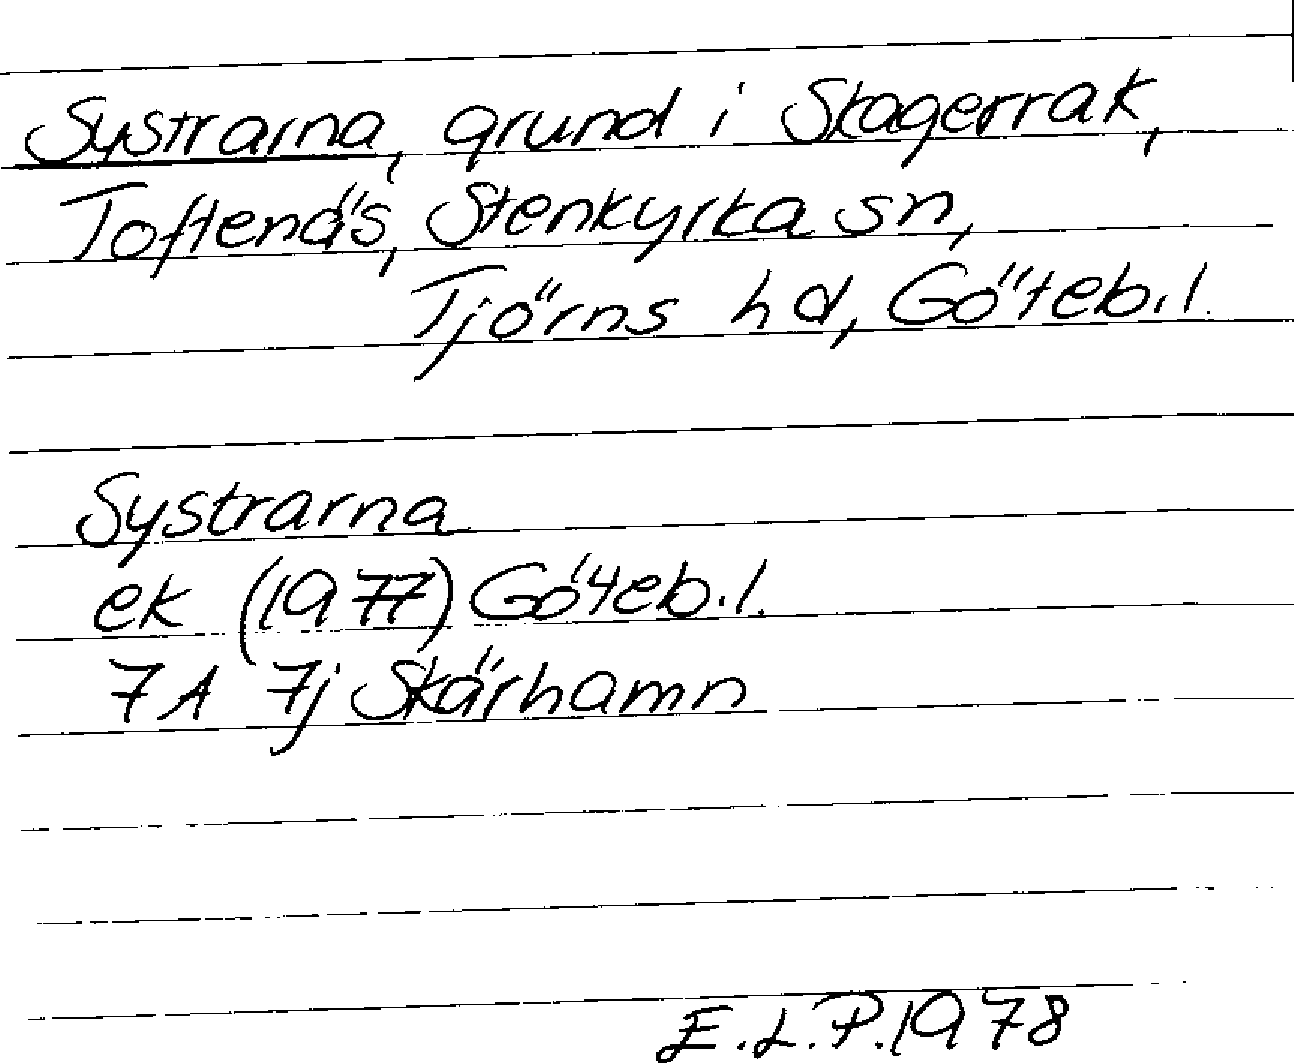 Systrarna, grund i Skagerrak,
Toftenäs, Stenkyrka sn,
Tjörns hd, Göteb.l.
Systrarna
ek (1977) Göteb.l.
7A 7j Skärhamn
E.L.P. 1978